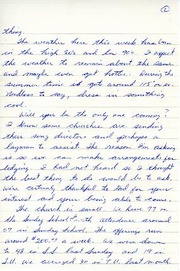 thing.
The weather here this week has been
in the high 80's and low 90's. I expect
the weather to remain about the same
and maybe even get hotter. During the
summer time it gets around 115° or so.
Needless to say, dress in something
cool.
Will you be the only one coming?
I know some churches are sending
their song director and perhaps a
layman to assist the reason I'm asking
is so we can make arrangements for
lodging. I had not heard so I thought
the best thing to do would be to ask.
We're certainly thankful to God for your
interest and your being able to come.
The church is small. We have 77 in
the Sunday School with attendance around
67 in Sunday School. The offerings run
around $200.00 a week. We were down
to 48 in S.S. last Sunday and 19 in
T.U. We averaged 30 in T.U. last month